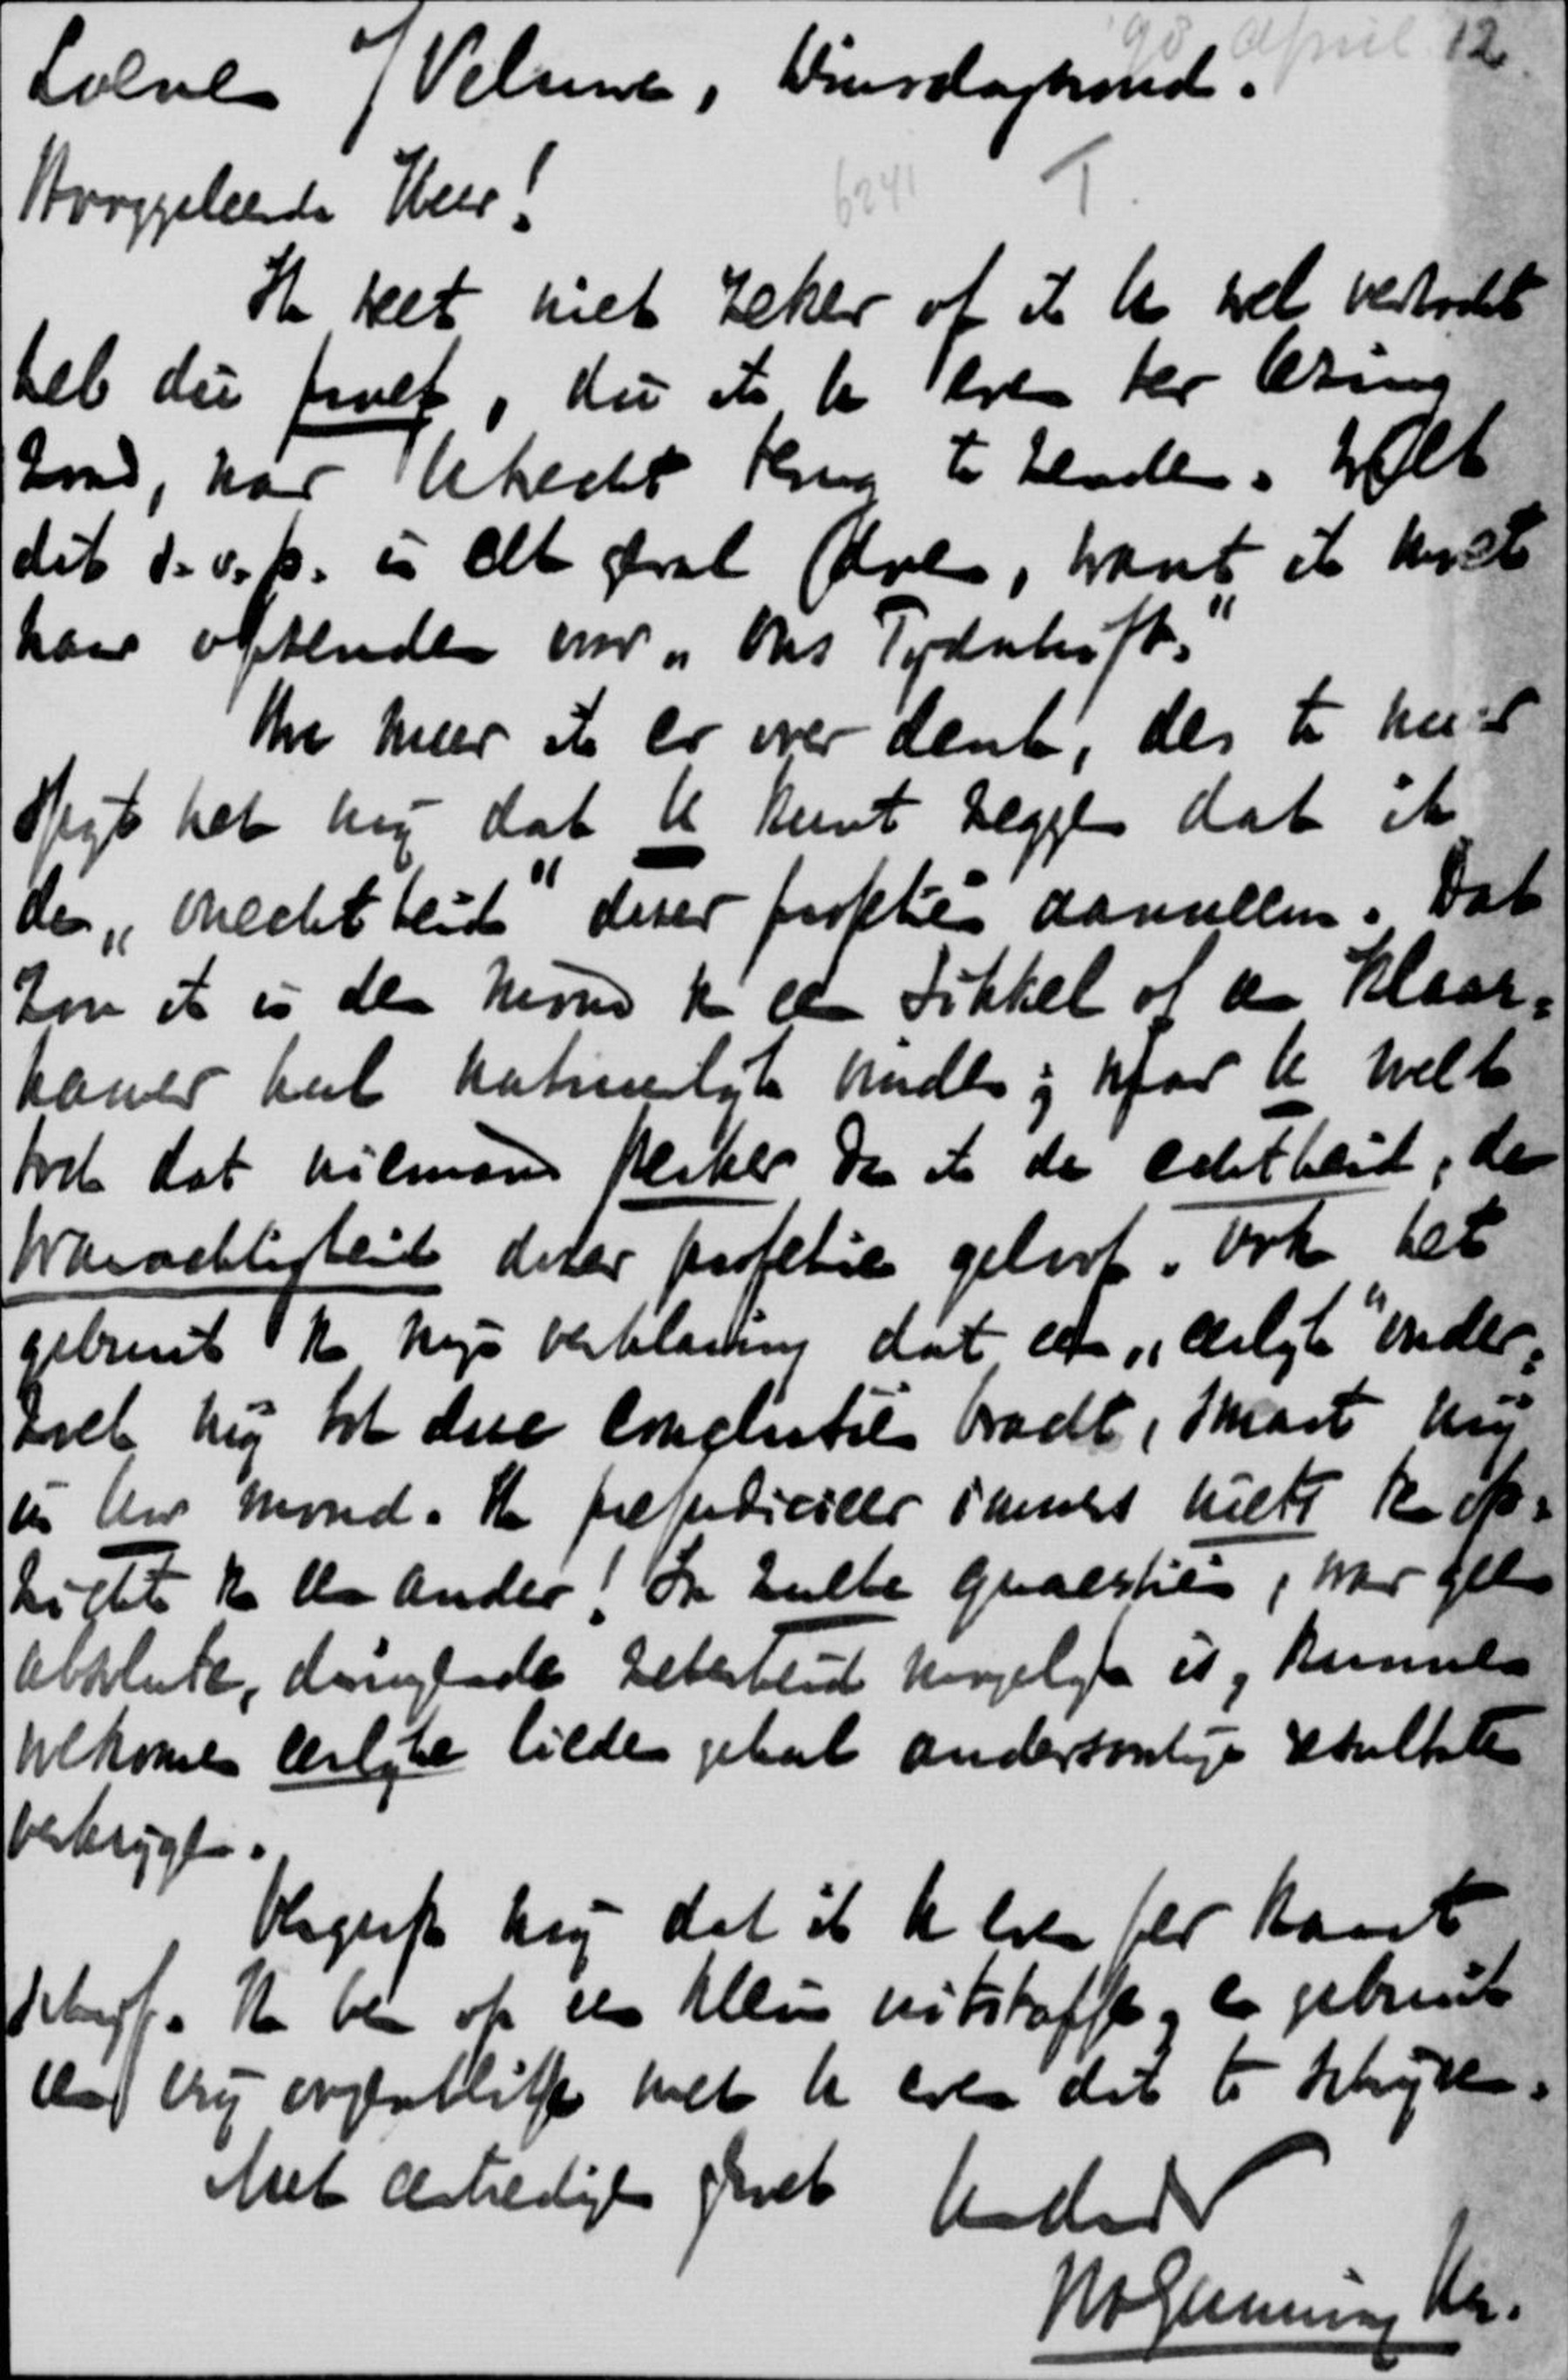 '98 April 12.
Loenen o/Veluwe, Dinsdagavond.
Hooggeleerde Heer!
6241 T.
Ik weet niet zeker of ik U wel verzocht
heb die proef, die ik U even ter lezing
zond, naar Utrecht terug te zenden. Wilt
dit s.v.p. in elk geval doen, want ik moet
haar afzenden voor „Ons Tydschrift."
Hoe meer ik er over denk, des te meer
spyt het my dat U kunt zeggen dat ik
de „onechtheid" dezer profetieën aanneem. Dat
zou ik in den mond v. een Sikkel of een Klaar-
hamer heel natuurlyk vinden; maar U weet
toch dat niemand sterker dan ik de echtheid, de
waarachtigheid dezer profetieën gelooft. Ook het
gebruik v. myn verklaring dat een „eerlyk" onder-
zoek my tot deze conclusieën bracht, smart my
in Uw mond. Ik prejudicieer immers niets ten op-
zichte v. een ander! In zulke quaestieën, waar geen
absolute, dwingende zekerheid mogelyk is, kunnen
volkomen eerlyke lieden geheel andersoortige resultaten
verkrygen.
Vergeef my dat ik U even per kaart
schryf. Ik ben op een klein uitstapje, en gebruik
een vry oogenblikje met U even dit te schryven.
Met eerbiedigen groet
JHGunning JHz.